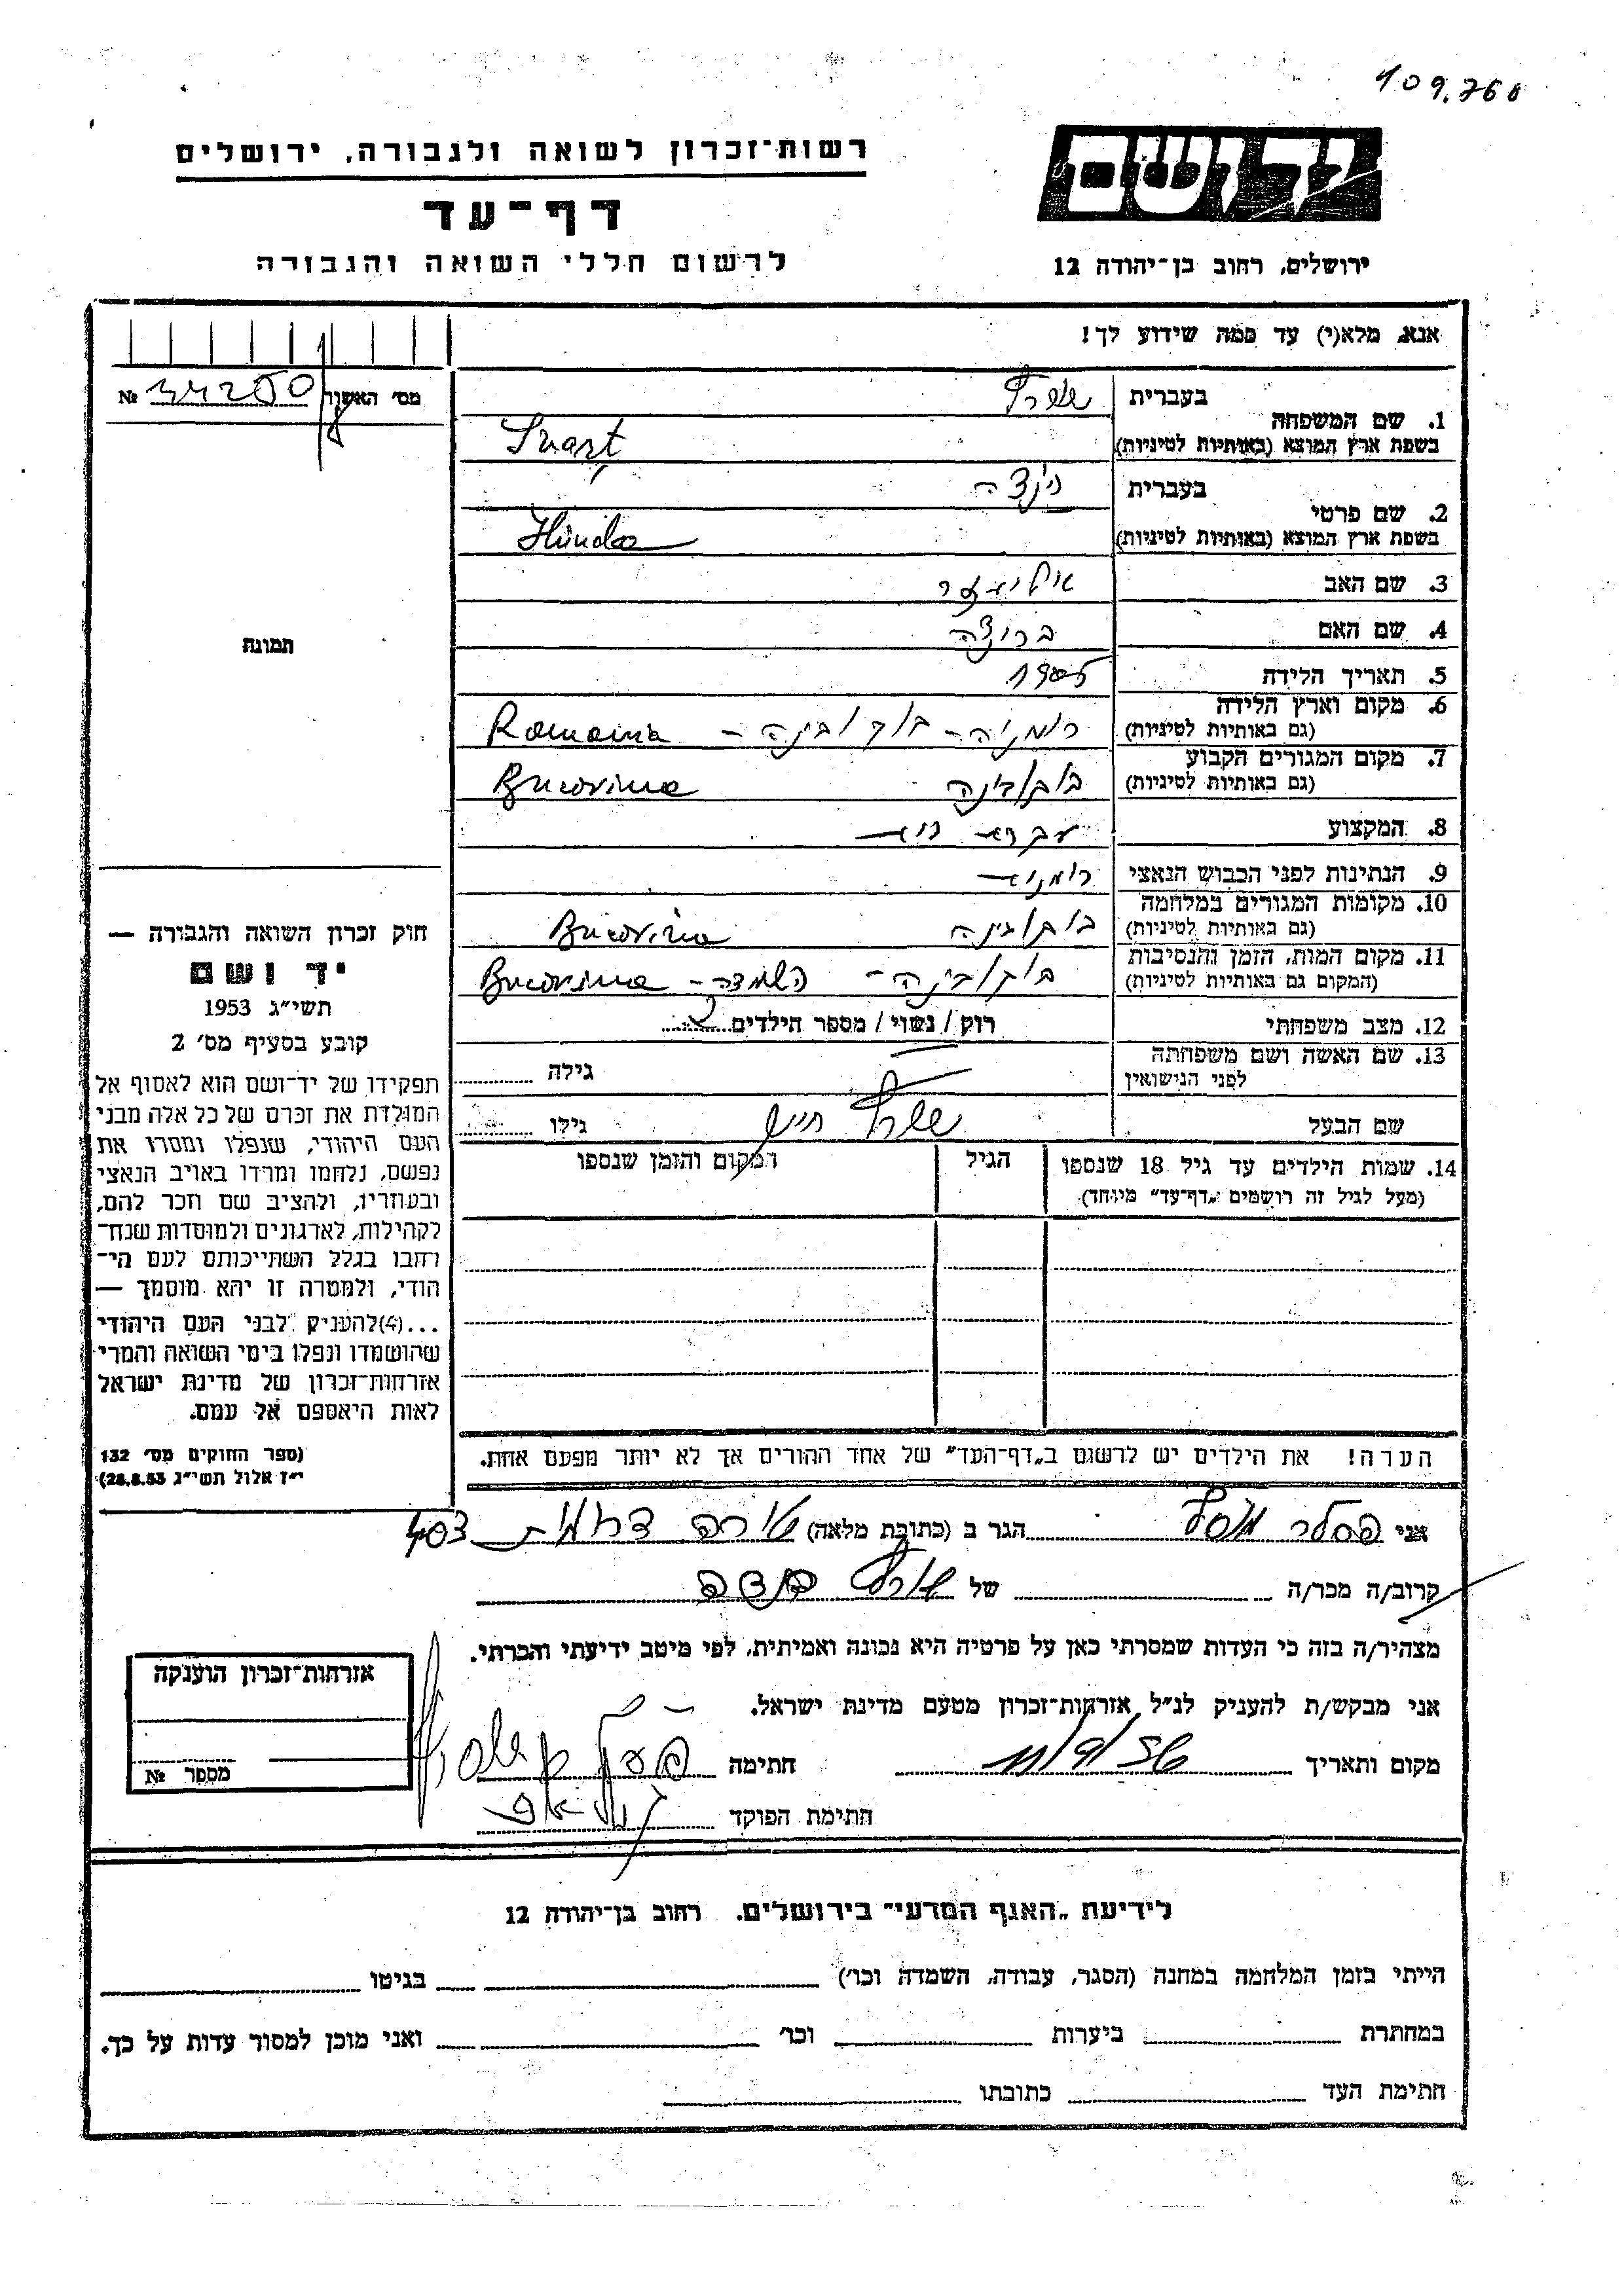 109.760
יד ושם
רשות-זכרון לשואה ולגבורה, ירושלים
דף-עד
ירושלים, רחוב בן-יהודה 12
לרשום חללי השואה והגבורה
אנא, מלא(י) עד כמה שידוע לך!
מס' האשור № 34250
1. שם המשפחה
בעברית
בשפת ארץ המוצא (באותיות לטיניות)
2. שם פרטי
בעברית
בשפת ארץ המוצא (באותיות לטיניות) Hinda
3. שם האב אליעזר
4. שם האם
5. תאריך הלידה 1905
6. מקום וארץ הלידה
(גם באותיות לטיניות) רומניה - בוקובינה - Romania
7. מקום המגורים הקבוע
(גם באותיות לטיניות) בוקובינה Bucovina
8. המקצוע
9. הנתינות לפני הכבוש הנאצי רומנית
10. מקומות המגורים במלחמה
(גם באותיות לטיניות) בוקובינה Bucovina
11. מקום המות, הזמן והנסיבות
(המקום גם באותיות לטיניות) בוקובינה - השמדה - Bucovina
12. מצב משפחתי רוק / נשוי / מספר הילדים 2
13. שם האשה ושם משפחתה
לפני הנישואין גילה
שם הבעל גילו
14. שמות הילדים עד גיל 18 שנספו
(מעל לגיל זה רושמים „דף-עד" מיוחד)
הגיל
המקום והזמן שנספו
תמונה
חוק זכרון השואה והגבורה —
יד ושם
תשי"ג 1953
קובע בסעיף מס' 2
תפקידו של יד-ושם הוא לאסוף אל
המולדת את זכרם של כל אלה מבני
העם היהודי, שנפלו ומסרו את
נפשם, נלחמו ומרדו באויב הנאצי
ובעוזריו, ולהציב שם וזכר להם,
לקהילות, לארגונים ולמוסדות שנח-
רבו בגלל השתייכותם לעם הי-
הודי, ולמטרה זו יהא מוסמך —
...(4)להעניק לבני העם היהודי
שהושמדו ונפלו בימי השואה והמרי
אזרחות-זכרון של מדינת ישראל
לאות היאספם אל עמם.
(ספר החוקים מס' 132
י"ז אלול תשי"ג 28.8.53)
הערה! את הילדים יש לרשום ב„דף-העד" של אחד ההורים אך לא יותר מפעם אחת.
אני הגר ב (כתובת מלאה) טירה
קרוב/ה מכר/ה של
מצהיר/ה בזה כי העדות שמסרתי כאן על פרטיה היא נכונה ואמיתית, לפי מיטב ידיעתי והכרתי.
אני מבקש/ת להעניק לנ"ל אזרחות-זכרון מטעם מדינת ישראל.
מקום ותאריך חתימה
חתימת הפוקד
אזרחות-זכרון הוענקה
מספר №
לידיעת „האגף המדעי" בירושלים, רחוב בן-יהודה 12
הייתי בזמן המלחמה במחנה (הסגר, עבודה, השמדה וכו') בגיטו
במחתרת ביערות וכו' ואני מוכן למסור עדות על כך.
חתימת העד כתובתו